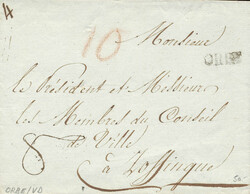 10
Monsieur
ORBE
le Président et Messieurs
les Membres du Conseil
de Ville
8
à Zoffingue
ORBE/VD